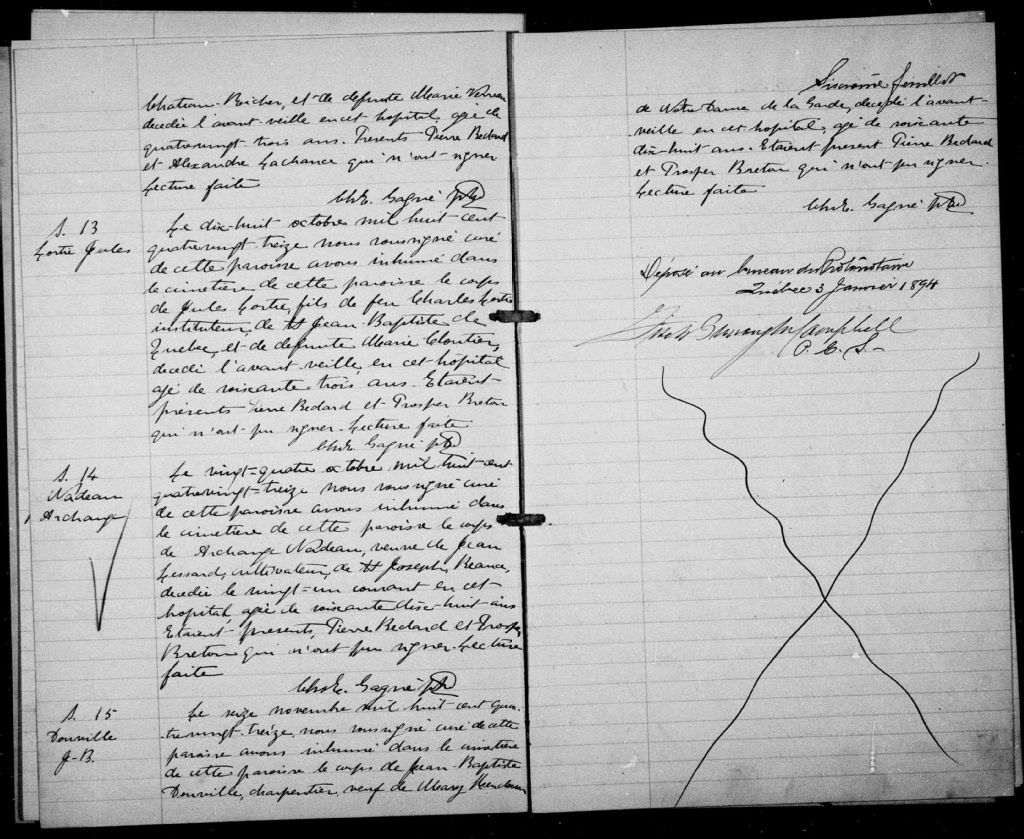 Chateau-Richer, et de defunte Marie Verreau
decedée l'avant-veille en cet hopital, agé de
quatrevingt trois ans. Presents Pierre Bedard
et Alexandre Lachance qui n'ont signer
Lecture faite
Chs E. Gagné ptr
S. 13
Lortie Jules
Le dix-huit octobre mil huit cent
quatrevingt treize nous soussigné curé
de cette paroisse avons inhumé dans
le cimetière de cette paroisse le corps
de Jules Lortie, fils de feu Charles Lortie
instituteur, de St Jean-Baptiste de
Quebec, et de defunte Marie Cloutier,
decedé l'avant veille, en cet hopital
agé de soixante trois ans. Etaient
présents Pierre Bedard et Prosper Breton
qui n'ont pu signer. Lecture faite
Chs E. Gagné ptr
S. 14
Nadeau
Archange
Le vingt-quatre octobre mil huit cent
quatrevingt-treize nous soussigné curé
de cette paroisse avons inhumé dans
le cimetière de cette paroisse le corps
de Archange Nadeau, veuve de Jean
Lessard, cultivateur, de St Joseph, Beauce,
decedée le vingt-un courant en cet
hopital, agée de soixante dix-huit ans
Etaient presents, Pierre Bedard et Prosper
Breton qui n'ont pu signer. Lecture
faite
Chs E. Gagné ptr
S. 15
Douville
J-B.
Le seize novembre mil huit cent qua-
trevingt-treize, nous soussigné curé de cette
paroisse avons inhumé dans le cimetière
de cette paroisse le corps de Jean-Baptiste
Douville, charpentier, veuf de Mary
feuillet
de Notre Dame de la Garde, decedé l'avant-
veille en cet hopital, agé de soixante
dix-huit ans. Etaient present Pierre Bedard
et Prosper Breton qui n'ont pu signer.
Lecture faite
Chs E. Gagné ptr
Déposé au bureau du Protonotaire
Québec 3 Janvier 1894
Burroughs Campbell
P. C. S.